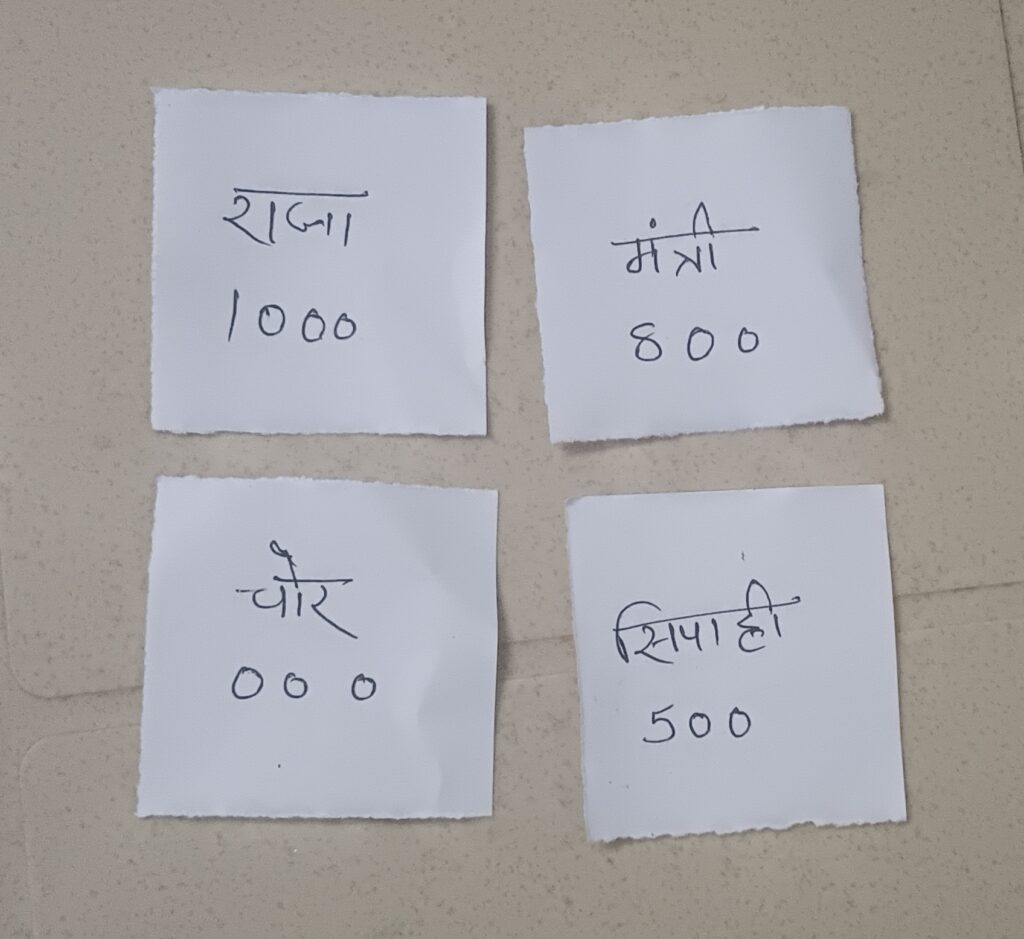 राजा
1000
मंत्री
800
चोर
000
सिपाही
500